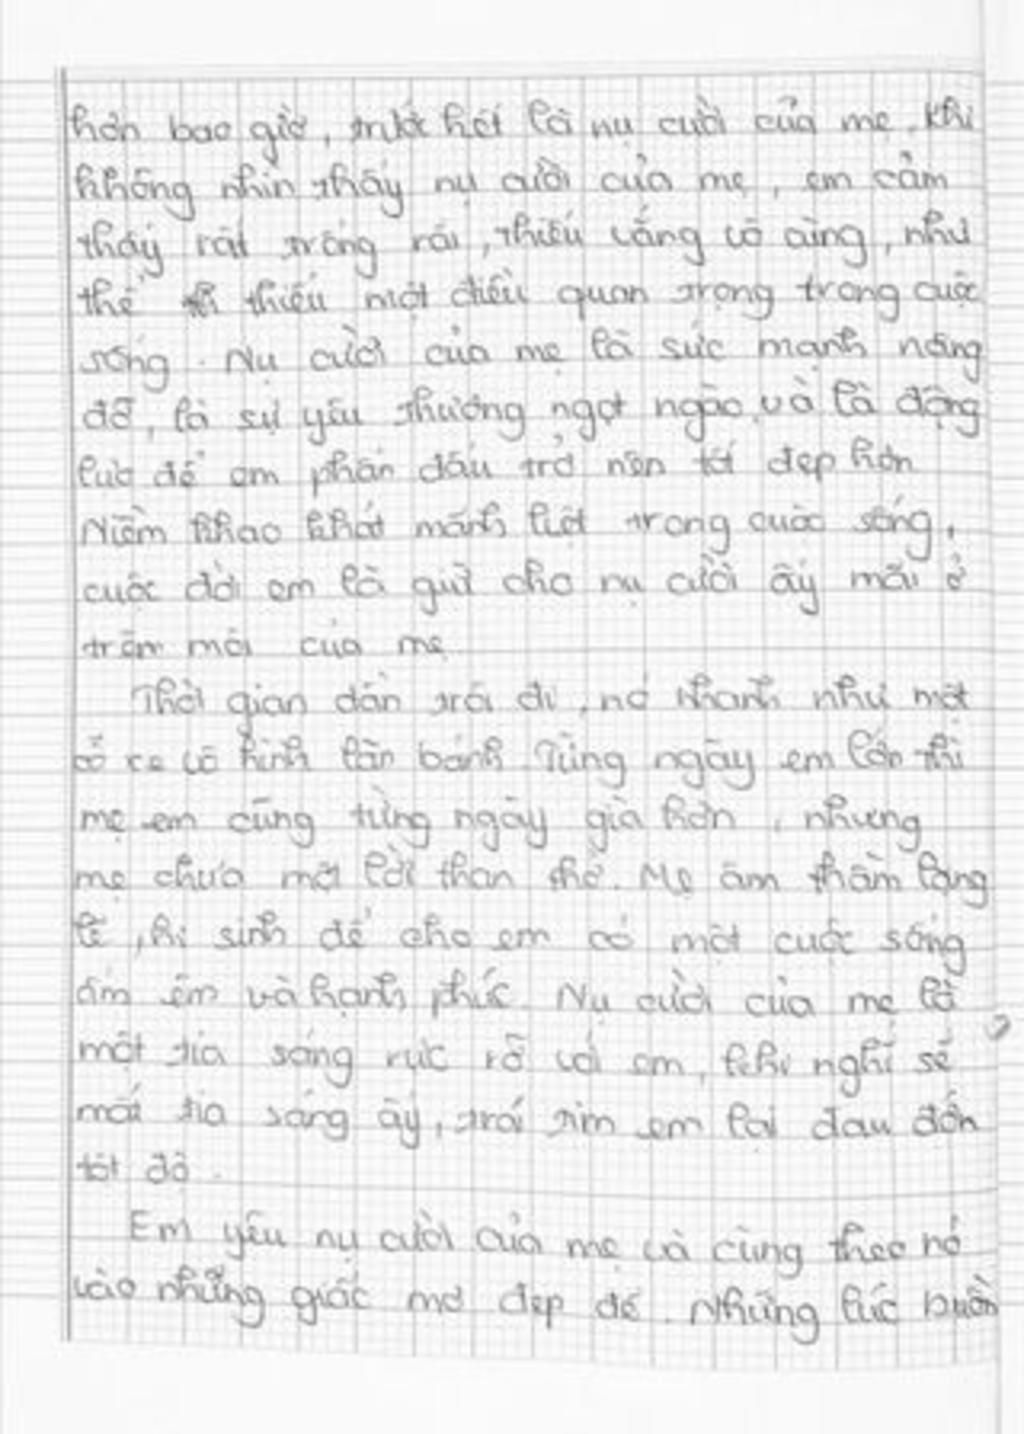 hơn bao giờ, trước hết là nụ cười của mẹ. Khi
không nhìn thấy nụ cười của mẹ, em cảm
thấy rất trống rải, thiếu vắng vô cùng, như
thể thiếu một điều quan trọng trong cuộc
sống. Nụ cười của mẹ là sức mạnh nâng
đỡ, là sự yêu thương ngọt ngào và là động
lực để em phấn đấu trở nên tốt đẹp hơn
Niềm khao khát mãnh liệt trong cuộc sống,
cuộc đời em là giữ cho nụ cười ấy mãi ở
trên môi của mẹ
Thời gian dần trôi đi, nó nhanh như một
cỗ xe vô hình lăn bánh. Từng ngày em lớn thì
mẹ em cũng từng ngày già hơn, nhưng
mẹ chưa một lời than thở. Mẹ âm thầm lặng
lẽ, hi sinh để cho em có một cuộc sống
ấm êm và hạnh phúc. Nụ cười của mẹ là
một tia sáng rực rỡ với em, khi nghĩ sẽ
mất tia sáng ấy, trái tim em lại đau đớn
tột độ.
Em yêu nụ cười của mẹ và cùng theo nó
vào những giấc mơ đẹp đẽ. Những lúc buồn